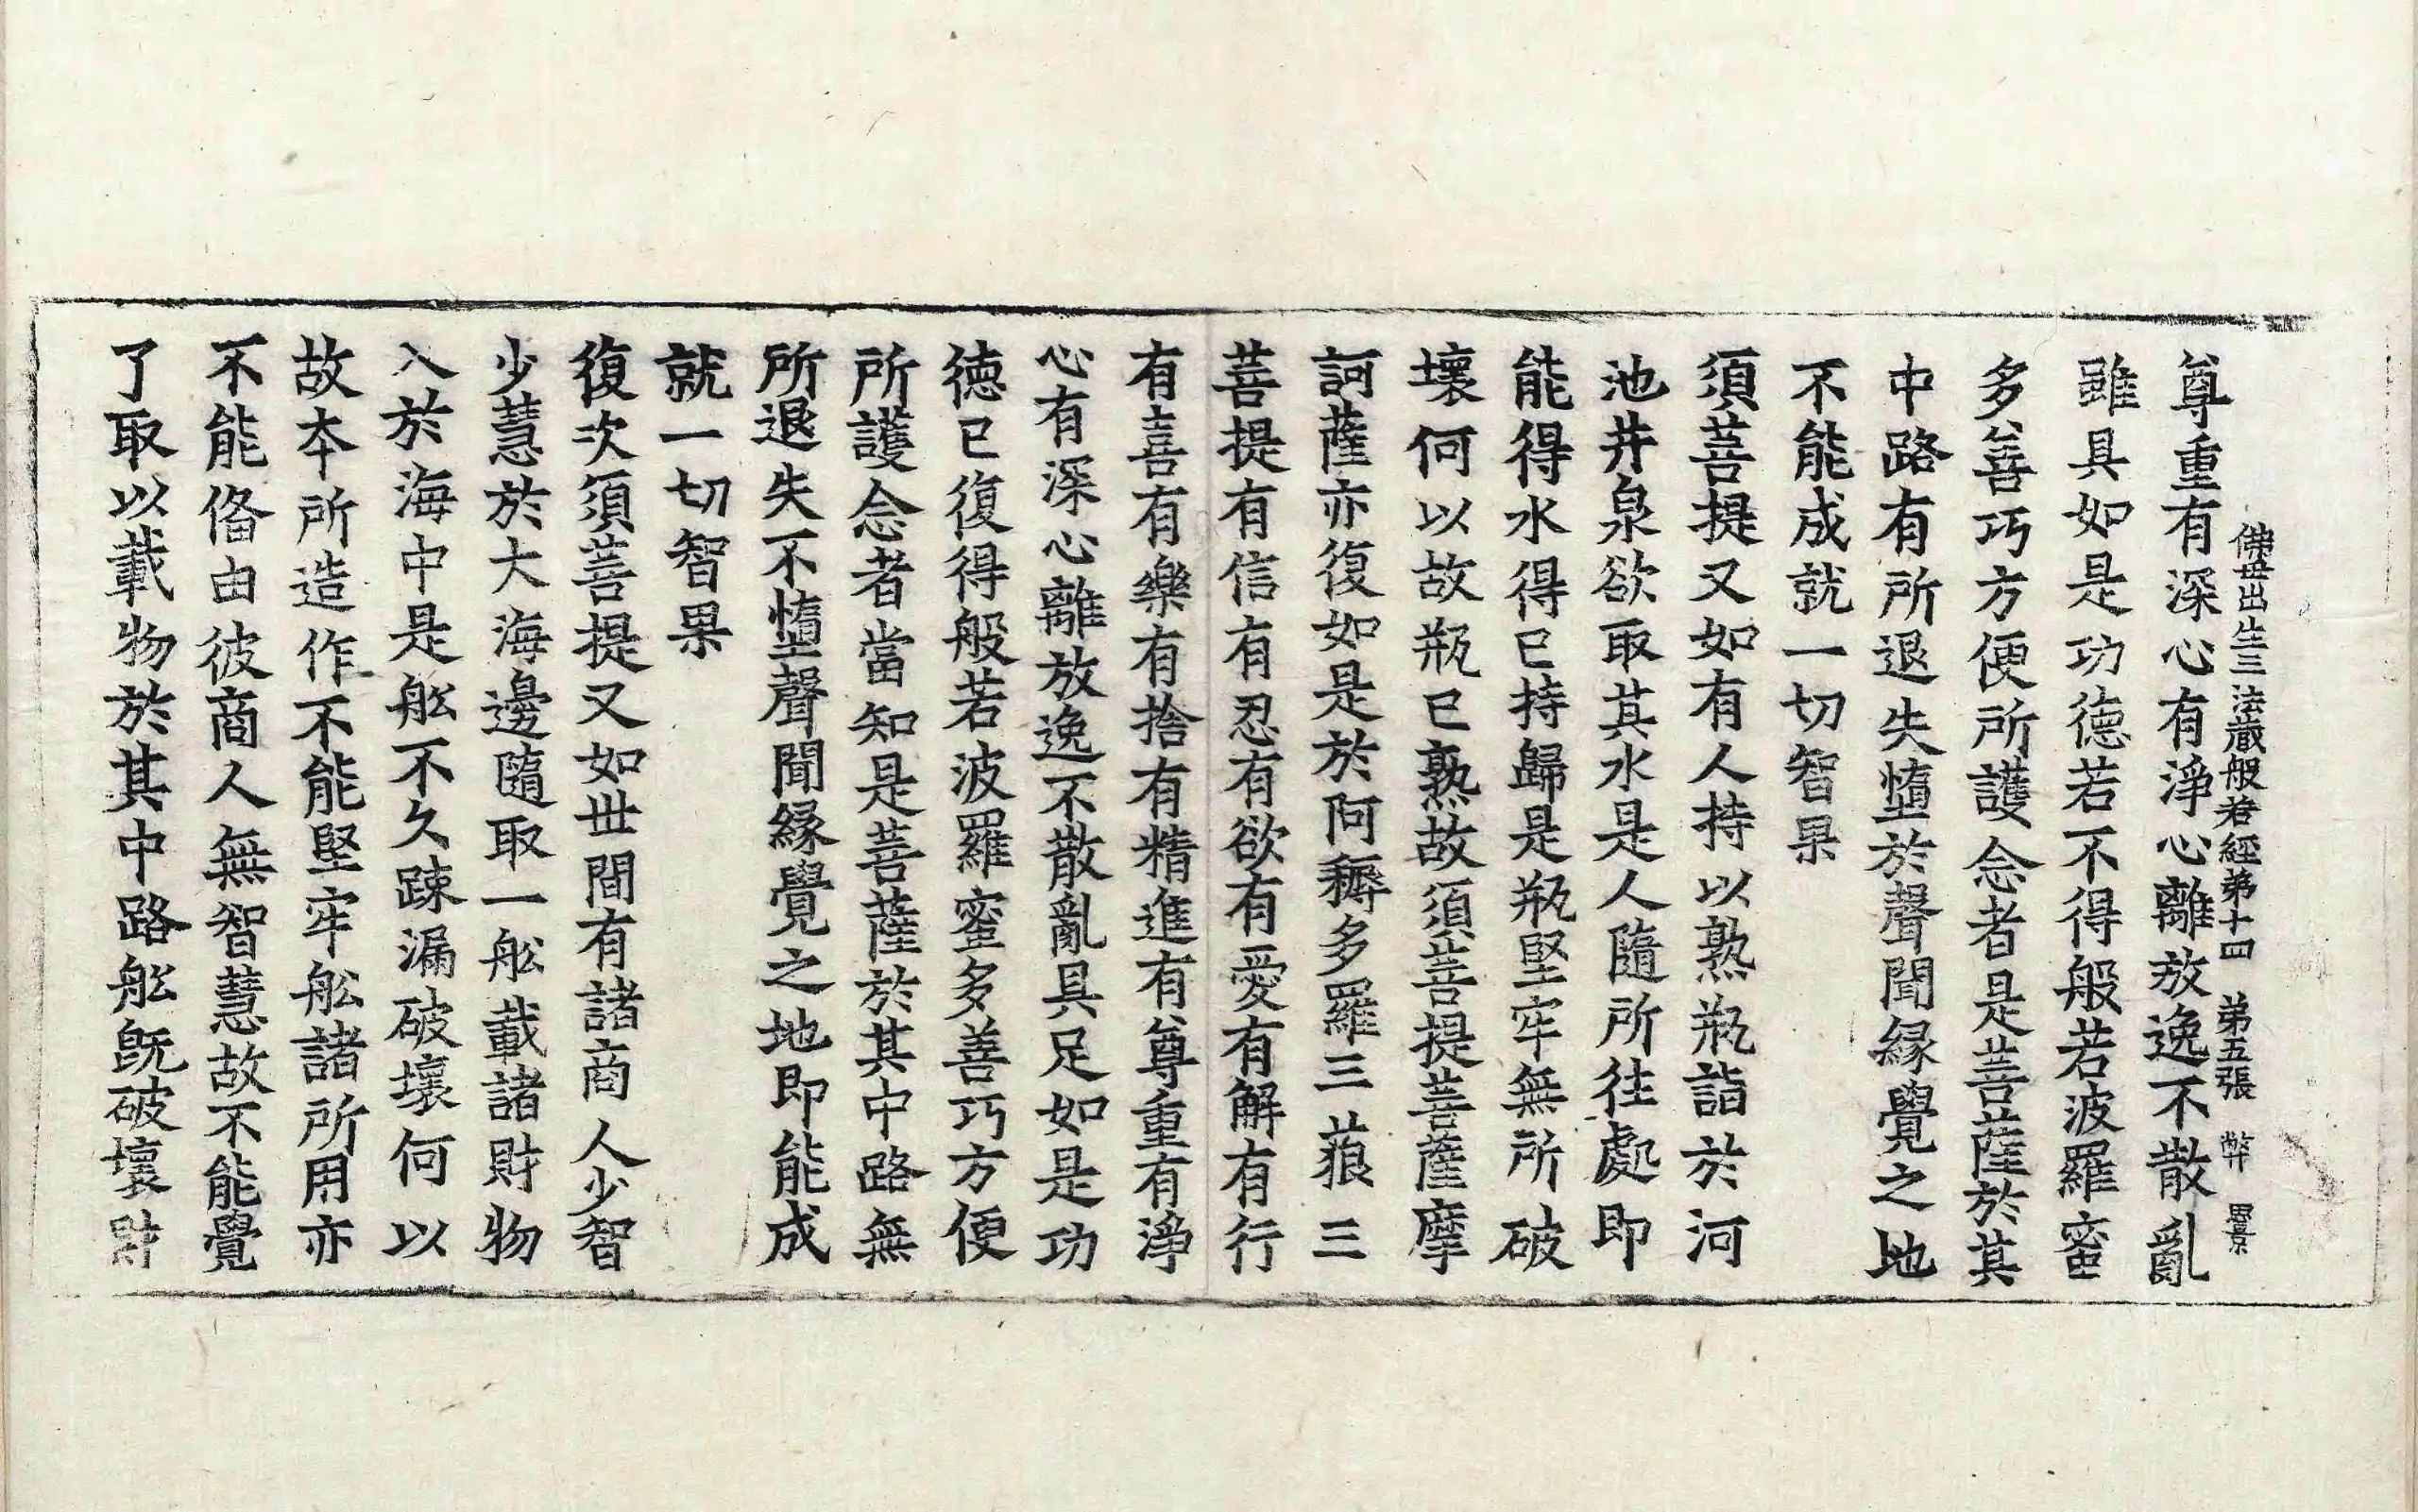 佛世出生三法藏般若經第十四　第五張　弊
尊重有深心有淨心離放逸不散亂
雖具如是功德若不得般若波羅蜜
多善巧方便所護念者是菩薩於其
中路有所退失墮於聲聞緣覺之地
不能成就一切智果
須菩提又如有人持以熟瓶詣於河
池井泉欲取其水是人隨所往處即
能得水得已持歸是瓶堅牢無所破
壞何以故瓶已熟故須菩提菩薩摩
訶薩亦復如是於阿耨多羅三藐三
菩提有信有忍有欲有愛有解有行
有喜有樂有捨有精進有尊重有淨
心有深心離放逸不散亂具足如是功
德已復得般若波羅蜜多善巧方便
所護念者當知是菩薩於其中路無
所退失不墮聲聞緣覺之地即能成
就一切智果
復次須菩提又如世間有諸商人少智
少慧於大海邊隨取一舩載諸財物
入於海中是舩不久踈漏破壞何以
故本所造作不能堅牢舩諸所用亦
不能俻由彼商人無智慧故不能覺
了取以載物於其中路舩既破壞財